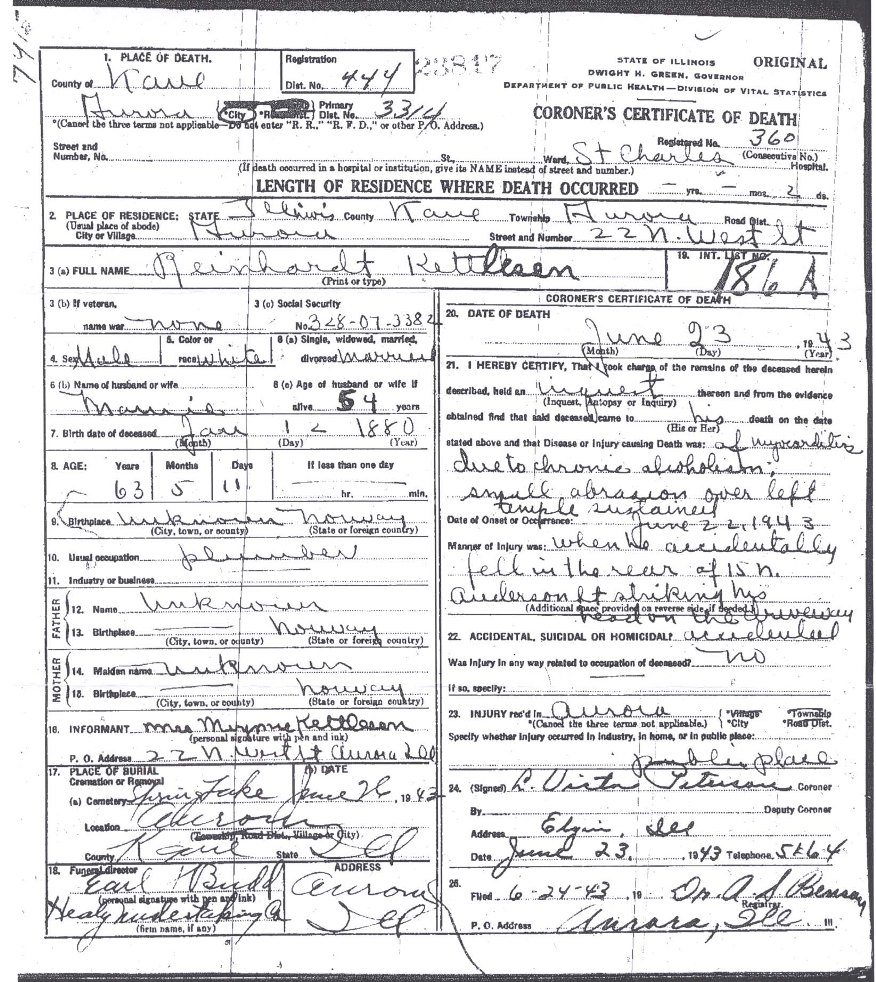 7415
1. PLACE OF DEATH. Registration 23817 STATE OF ILLINOIS ORIGINAL
County of Kane Dist. No. 444 DWIGHT H. GREEN, GOVERNOR
DEPARTMENT OF PUBLIC HEALTH—DIVISION OF VITAL STATISTICS
Aurora *City Primary Dist. No. 3314 CORONER'S CERTIFICATE OF DEATH
*(Cancel the three terms not applicable—Do not enter "R. R.," "R. F. D.," or other P. O. Address.)
Registered No. 360
(Consecutive No.)
Street and
Number, No. St., Ward, St Charles Hospital.
(If death occurred in a hospital or institution, give its NAME instead of street and number.)
LENGTH OF RESIDENCE WHERE DEATH OCCURRED — yrs. — mos. 2 ds.
2. PLACE OF RESIDENCE: STATE Illinois County Kane Township Aurora Road Dist.
(Usual place of abode)
City or Village Aurora Street and Number 22 N. West St
3 (a) FULL NAME Reinhardt Kettlesen
(Print or type)
19. INT. LIST NO. 186 A
3 (b) If veteran, 3 (c) Social Security
name war none No. 328-07-3382
4. Sex Male 5. Color or race White 6 (a) Single, widowed, married, divorced Married
6 (b) Name of husband or wife 6 (c) Age of husband or wife if
alive 54 years
7. Birth date of deceased Jan 12 1880
(Month) (Day) (Year)
8. AGE: Years Months Days If less than one day
63 5 11 hr. min.
9. Birthplace unknown Norway
(City, town, or county) (State or foreign country)
10. Usual occupation plumber
11. Industry or business
FATHER
12. Name unknown
13. Birthplace Norway
(City, town, or county) (State or foreign country)
MOTHER
14. Maiden name unknown
15. Birthplace Norway
(City, town, or county) (State or foreign country)
16. INFORMANT Mrs Kettleson
(personal signature with pen and ink)
P. O. Address 22 N West St Aurora Ill
17. PLACE OF BURIAL (b) DATE
Cremation or Removal
(a) Cemetery Spring Lake June 26, 1943
Location Aurora
(Township, Road Dist., Village or City)
County Kane State Ill
18. Funeral director ADDRESS
Earl H Budd Aurora
(personal signature with pen and ink)
Healy Undertaking Co Ill
(firm name, if any)
CORONER'S CERTIFICATE OF DEATH
20. DATE OF DEATH
June 23 1943
(Month) (Day) (Year)
21. I HEREBY CERTIFY, That I took charge of the remains of the deceased herein
described, held an inquest thereon and from the evidence
(Inquest, Autopsy or Inquiry)
obtained find that said deceased came to his death on the date
(His or Her)
stated above and that Disease or Injury causing Death was: of myocarditis
due to chronic alcoholism;
small abrasion over left
temple sustained
Date of Onset or Occurrence: June 22, 1943
Manner of Injury was: when he accidentally
fell in the rear of 15 N.
Anderson St striking his
(Additional space provided on reverse side, if needed.)
head on the driveway
22. ACCIDENTAL, SUICIDAL OR HOMICIDAL? accidental
Was Injury in any way related to occupation of deceased? no
If so, specify:
23. INJURY rec'd in Aurora *Village *Township
*(Cancel the three terms not applicable.) *City *Road Dist.
Specify whether injury occurred in industry, in home, or in public place:
public place
24. (Signed) L. Vista Peterson Coroner
By Deputy Coroner
Address Elgin, Ill
Date June 23, 1943 Telephone 5164
25. Filed 6-24-43, 19 Dr. A S Benson
Registrar.
P. O. Address Aurora, Ill Ill.